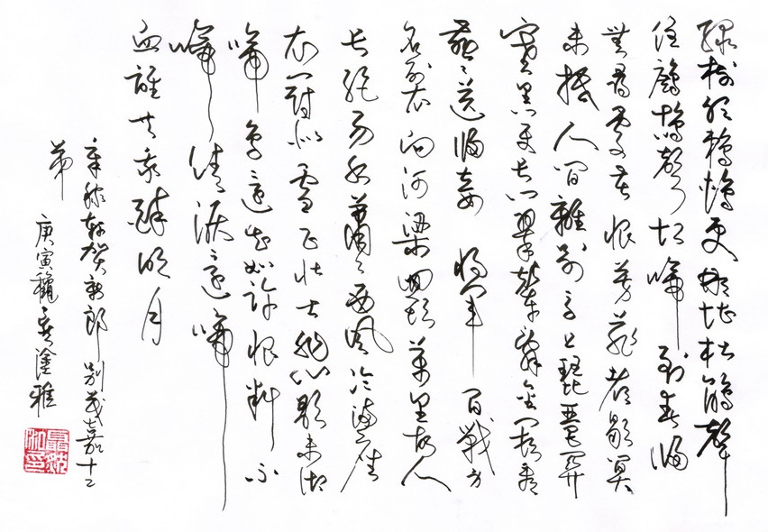 綠樹聽鵜鴂更那堪杜鵑聲
住鷓鴣聲切啼到春歸
無尋處苦恨芳菲都歇算
未抵人間離別馬上琵琶關
塞黑更長門翠輦辭金闕看
燕燕送歸妾 將軍百戰身
名裂向河梁回頭萬里故人
長絕易水蕭蕭西風冷滿座
衣冠似雪正壯士悲歌未徹
啼鳥還知如許恨料不
啼清淚還啼
血誰共我醉明月
辛棄疾賀新郎 別茂嘉十二
弟 庚寅穐 塗雅